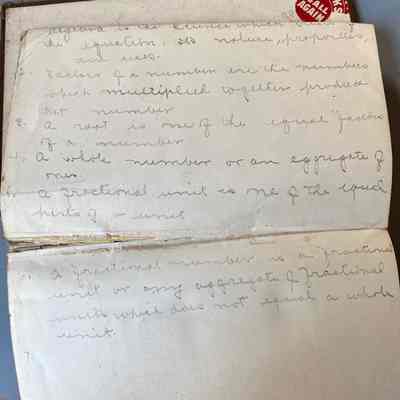 is the science which
the equation, its nature, properties,
and uses.
2. Factors of a number are the numbers
which multiplied together produce
that number
3. A root is one of the equal factors
of a number
4. A whole number or an aggregate of
ones.
A fractional unit is one of the equal
parts of a unit
A fractional number is a fractional
unit or any aggregate of fractional
units which does not equal a whole
unit.
7.
CALL
AGAIN